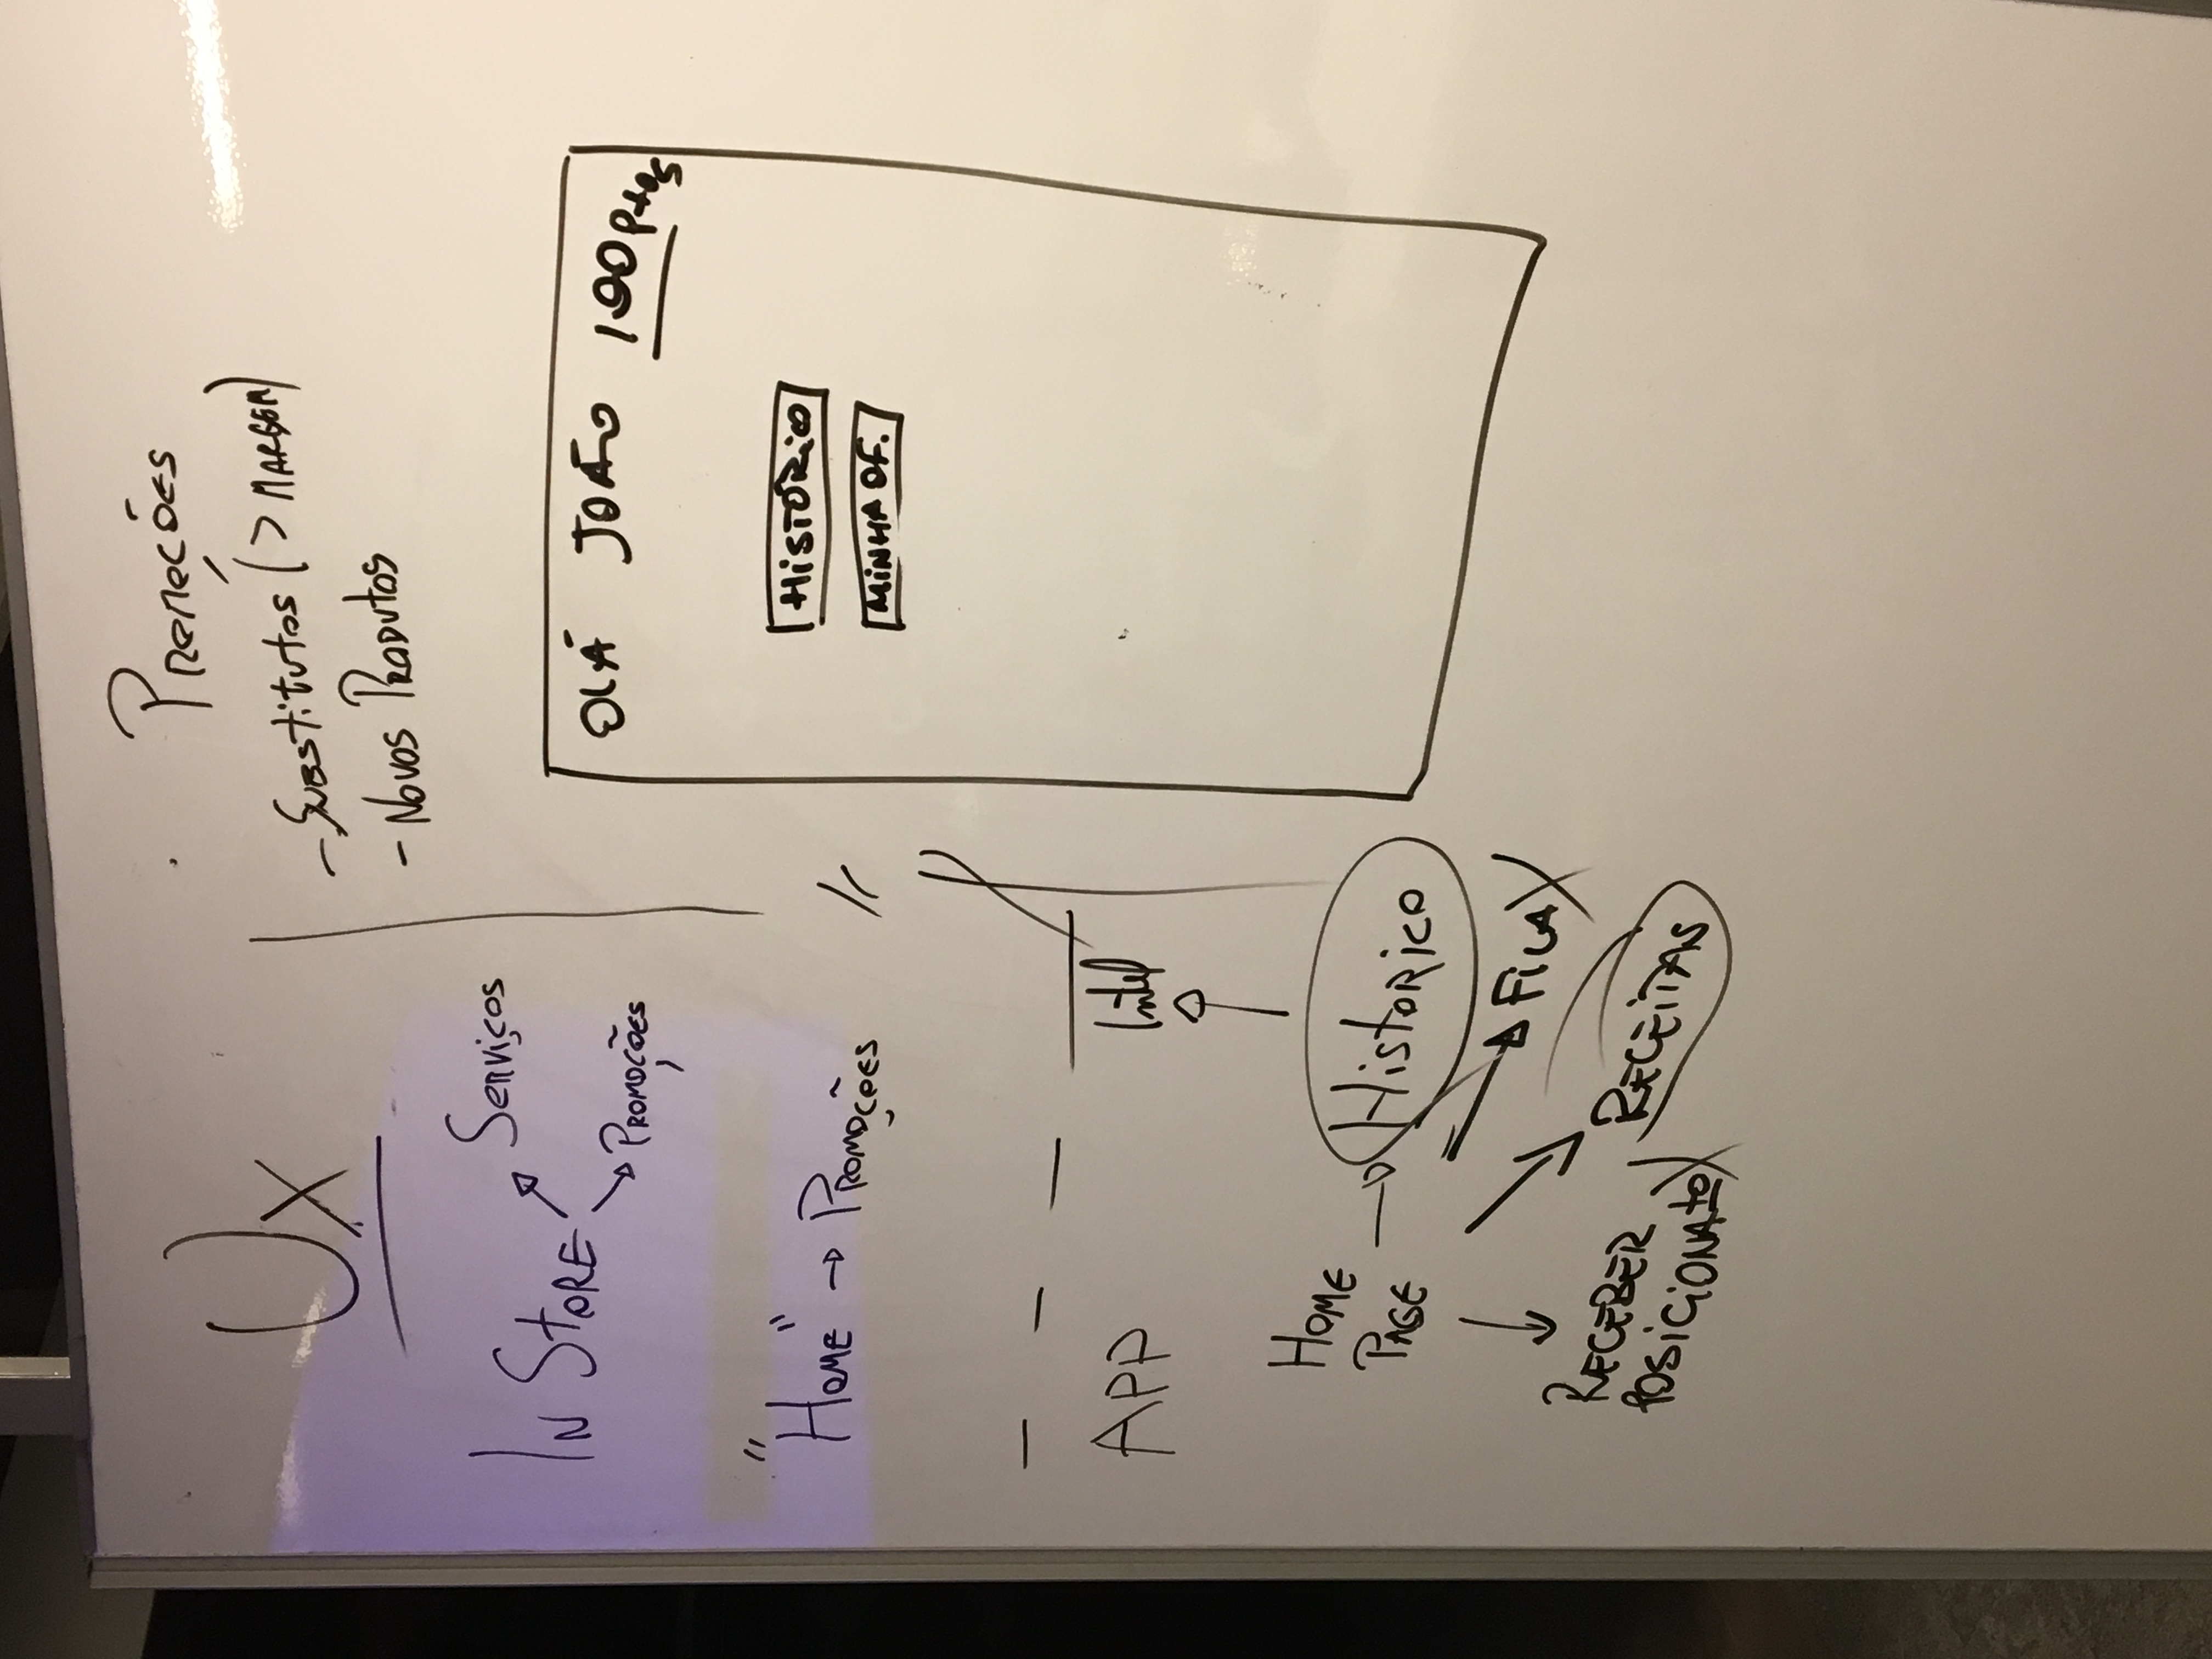 UX
In Store
Serviços
Promoções
"Home" → Promoções
APP
Intel
Home
Page
Historico
Fila X
Receber
Posicionato X
Receitas
Promoções
- Substitutos (> Margem)
- Novos Produtos
OLÁ JOÃO 100 Ptos
HISTÓRICO
MINHA OF.